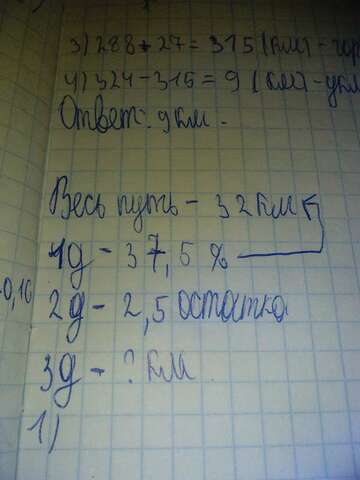 3) 288 + 27 = 315 (км) -
4) 324 - 315 = 9 (км) -
Ответ: 9 км.
Весь путь - 32 км
1д - 37,5 %
-0,16
2д - 2,5 остатка
3д - ? км.
1)